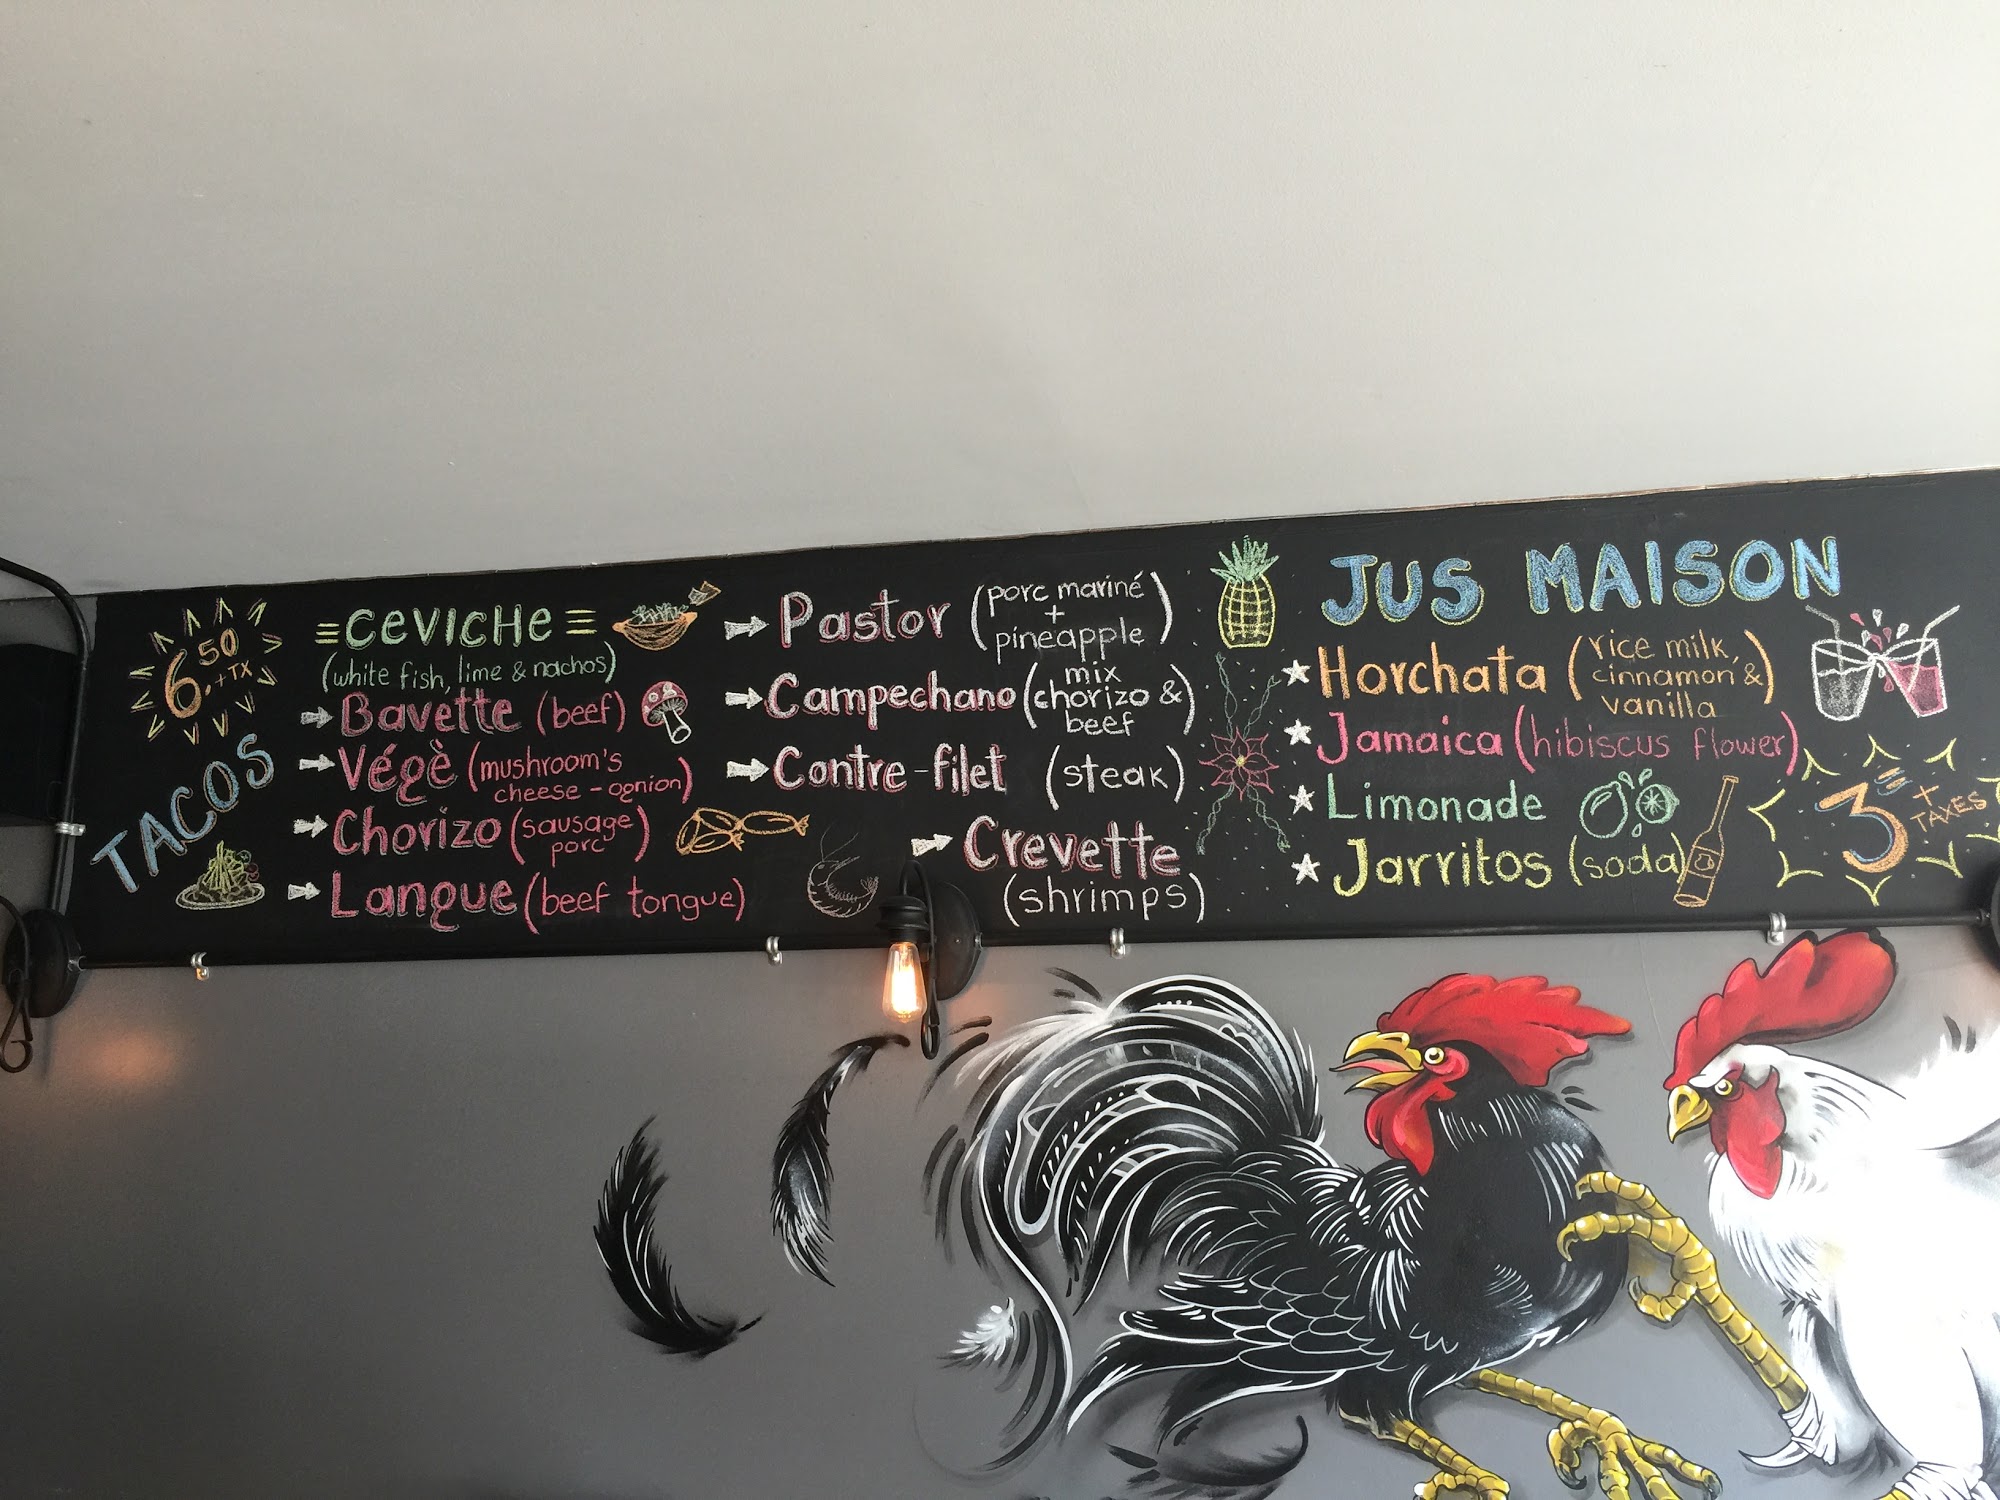 6.50 + TX
TACOS
CEVICHE
(white fish, lime & nachos)
Bavette (beef)
Végè (mushroom's
cheese - ognion)
Chorizo (sausage
porc)
Langue (beef tongue)
Pastor (porc mariné
+
pineapple)
Campechano (mix
chorizo &
beef)
Contre-filet (steak)
Crevette
(shrimps)
JUS MAISON
Horchata (rice milk,
cinnamon &
vanilla)
Jamaica (hibiscus flower)
Limonade
Jarritos (soda)
3 +
TAXES